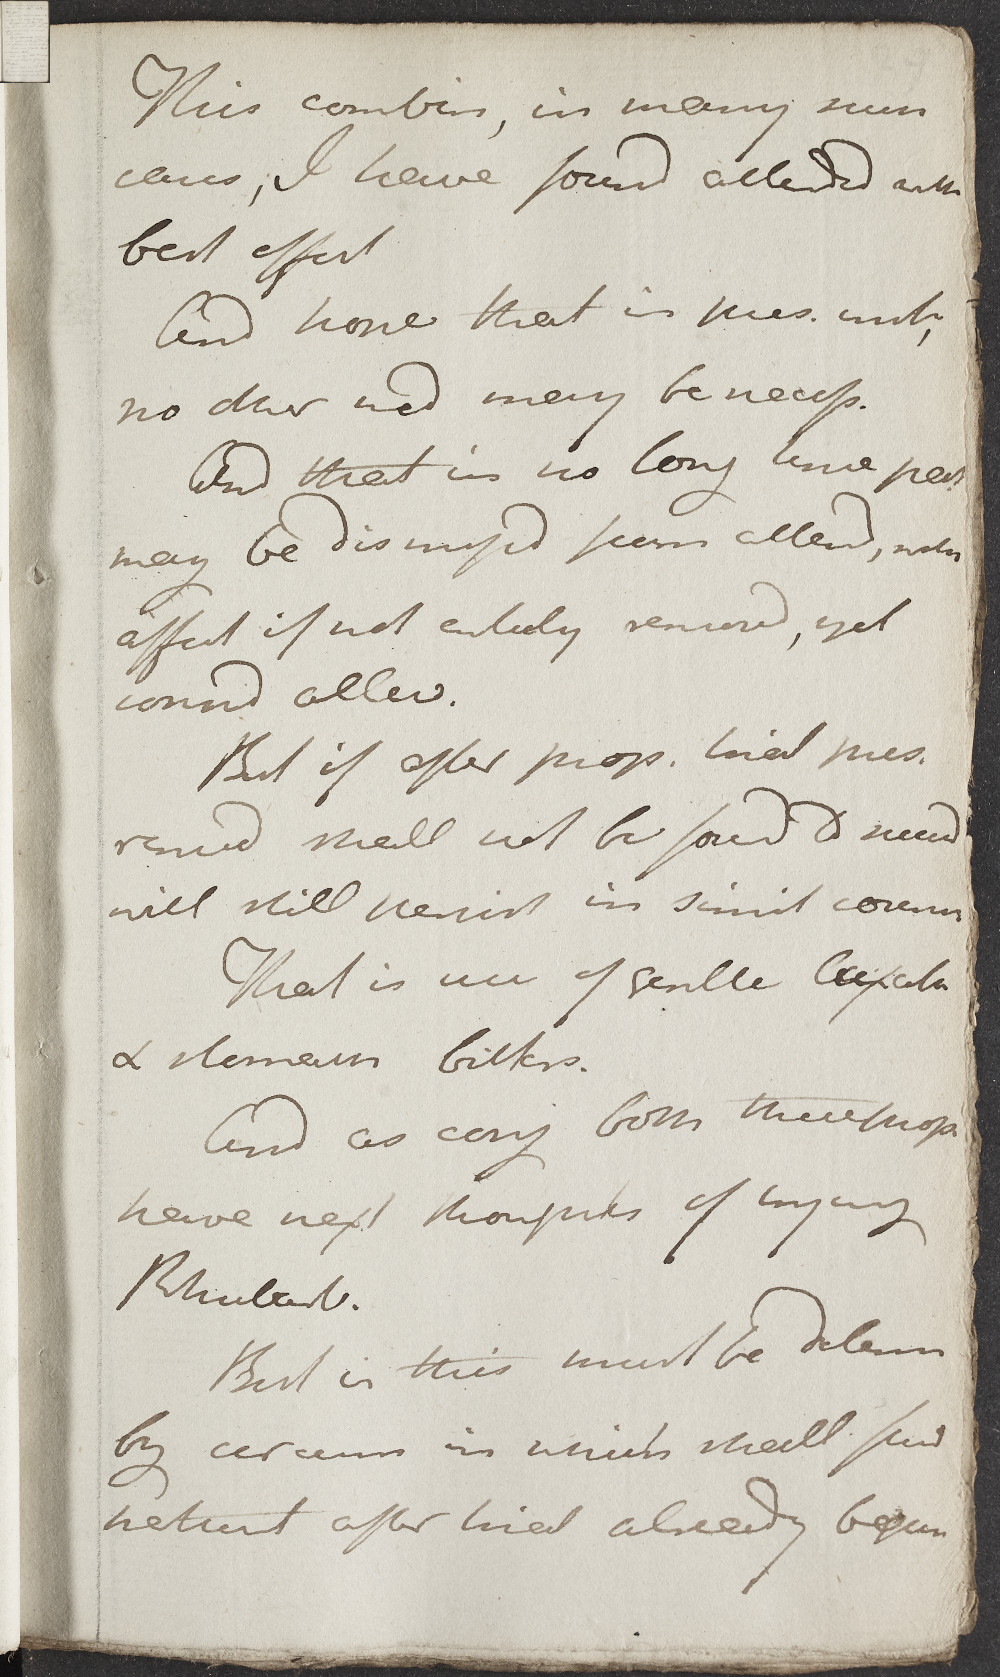 This combin, in many sim
cases, I have found attended with
best effect
And hope that in pres. inst,
no other med may be necess.
And that in no long time pat
may be dismissed from attend, with
affect if not entirely removed, yet
consid allev.
But if after prop. trial pres.
remed shall not be found to succeed
will still persist in simil course
That is use of gentle laxativ
& stomach bitters.
And as conj both these prop
have next thoughts of trying
Rhubarb.
But in this must be determ
by circum in which shall find
patient after trial already begun